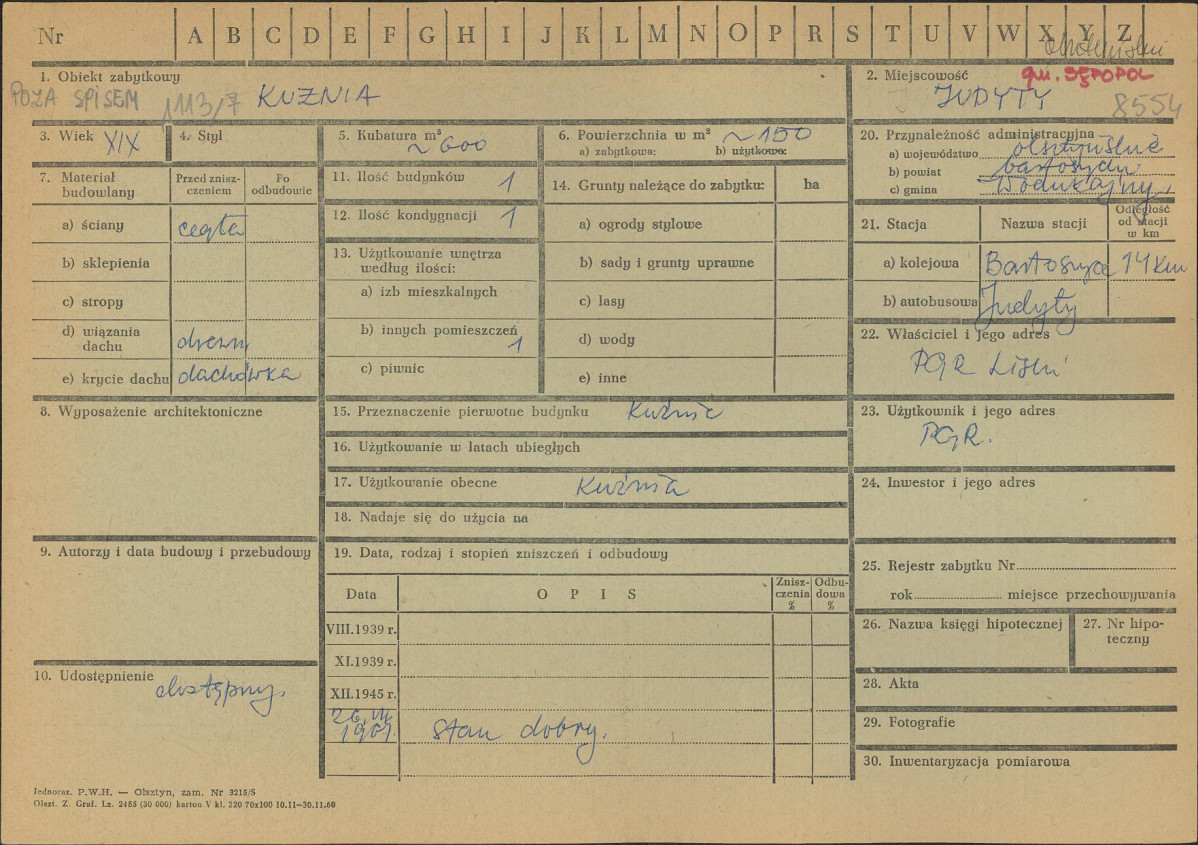 Nr A B C D E F G H I J K L M N O P R S T U V W X Y Z
1. Obiekt zabytkowy
POZA SPISEM 1113/7 KUŹNIA
2. Miejscowość
gm. SĘPOPOL
JUDYTY
8554
3. Wiek XIX
4. Styl
5. Kubatura m³
~600
6. Powierzchnia w m² ~150
a) zabytkowa: b) użytkowa:
20. Przynależność administracyjna
a) województwo olsztyńskie
b) powiat
c) gmina
7. Materiał budowlany
Przed znisz-
czeniem
Po
odbudowie
a) ściany cegła
b) sklepienia
c) stropy
d) wiązania
dachu drewn
e) krycie dachu dachówka
11. Ilość budynków 1
12. Ilość kondygnacji 1
13. Użytkowanie wnętrza
według ilości:
a) izb mieszkalnych
b) innych pomieszczeń
1
c) piwnic
14. Grunty należące do zabytku: ha
a) ogrody stylowe
b) sady i grunty uprawne
c) lasy
d) wody
e) inne
21. Stacja
Nazwa stacji
Odległość
od stacji
w km
a) kolejowa Bartoszyce 14 km
b) autobusowa Judyty
22. Właściciel i jego adres
PGR
23. Użytkownik i jego adres
PGR.
24. Inwestor i jego adres
8. Wyposażenie architektoniczne
15. Przeznaczenie pierwotne budynku kuźnia
16. Użytkowanie w latach ubiegłych
17. Użytkowanie obecne kuźnia
18. Nadaje się do użycia na
9. Autorzy i data budowy i przebudowy
19. Data, rodzaj i stopień zniszczeń i odbudowy
Data
O P I S
Znisz-
czenia
%
Odbu-
dowa
%
VIII.1939 r.
XI.1939 r.
XII.1945 r.
stan dobry.
10. Udostępnienie
dostępny.
25. Rejestr zabytku Nr
rok miejsce przechowywania
26. Nazwa księgi hipotecznej
27. Nr hipo-
teczny
28. Akta
29. Fotografie
30. Inwentaryzacja pomiarowa
Jednoraz. P.W.H. — Olsztyn, zam. Nr 3215/S
Olszt. Z. Graf. Lz. 2485 (30 000) karton V kl. 220 70x100 10.11—30.11.60